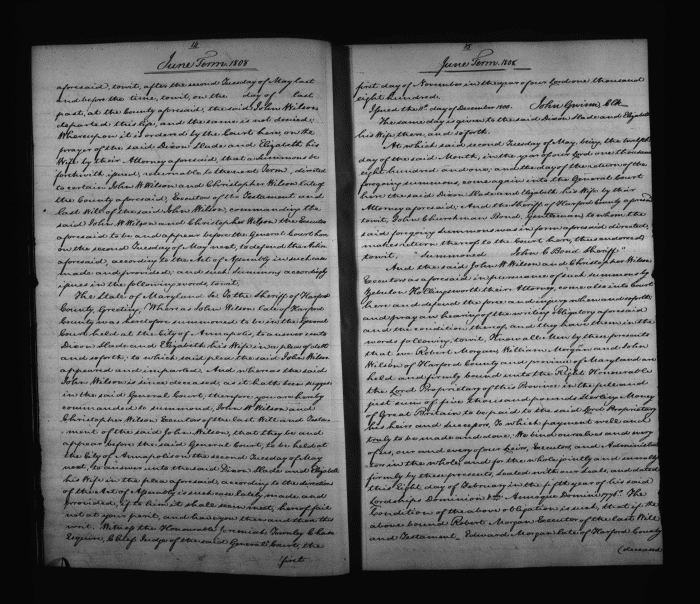 14
June Term. 1808
aforesaid, to wit, after the second Tuesday of May last
and before the time, to wit, on the day of last
past, at the County aforesaid, the said John Wilson
departed this life, and the same is not denied;
Whereupon it is ordered by the Court here, on the
prayer of the said Dixon Slade and Elizabeth his
Wife by their Attorney aforesaid, that a Summons be
forthwith issued, returnable to the next Term, directed
to certain John W Wilson and Christopher Wilson late of
the County aforesaid, Executors of the Testament and
Last Will of the said John Wilson, commanding the
said John W Wilson and Christopher Wilson the Executors
aforesaid to be and appear before the General Court here
on the second Tuesday of May next, to defend the Action
aforesaid, according to the Act of Assembly in such case
made and provided; and such Summons accordingly
issues in the following words, to wit.
The State of Maryland to the Sheriff of Harford
County, Greeting. Whereas John Wilson late of Harford
County was heretofore summoned to be in the General
Court held at the City of Annapolis, to answer unto
Dixon Slade and Elizabeth his Wife in a plea of debt
and so forth, to which said plea the said John Wilson
appeared and imparled, And whereas the said
John Wilson is since deceased, as it hath been suggested
in the said General Court, therefore you are hereby
commanded to summond, John W Wilson and
Christopher Wilson Executors of the last Will and Testa-
ment of the said John Wilson, that they be and
appear before the said General Court, to be held at
the City of Annapolis on the second Tuesday of May
next, to answer unto the said Dixon Slade and Elizabeth
his Wife in the plea aforesaid, according to the direction
of the Act of Assembly in such case lately made and
provided, if to him it shall seem meet, hereof fail
not at your peril, and have you then and there this
writ. Witness the Honourable Jeremiah Townley Chase
Esquire, Chief Judge of the said General Court, the
first
15
June Term. 1808
first day of November in the year of our Lord one thousand
eight hundred.
Issued the 8th. day of December 1800. John Gwinn Clk
The same day is given to the said Dixon Slade and Elizabeth
his Wife then, and so forth.
At which said second Tuesday of May, being the twelfth
day of the said Month, in the year of our Lord one thousand
eight hundred and one, and the day of the return of the
foregoing summons, come again into the General Court
here the said Dixon Slade and Elizabeth his Wife by their
Attorney aforesaid; And the Sheriff of Harford County aforesaid
to wit, John Churchman Bond, Gentleman, to whom the
said foregoing summons was in form aforesaid directed,
makes return thereof to the Court here, thus endorsed,
to wit. "Summoned John C Bond Sheriff."
And the said John W Wilson and Christopher Wilson
Executors as aforesaid in pursuance of such summons by
Zebulon Hollingsworth their Attorney, come also into Court
here and defend the force and injury when and so forth,
and pray an hearing of the writing obligatory aforesaid
and the condition thereof, and they have them in the
words following, to wit. Know all Men by these presents
that we Robert Morgan, William Morgan and John
Wilson of Harford County and province of Maryland are
held and firmly bound unto the Right Honourable
the Lord Proprietary of this Province in the full and
just sum of five thousand pounds Sterling Money
of Great Britain to be paid to the said Lord Proprietary
his heirs and successors, To which payment well and
truly to be made and done, We bind ourselves and every
of us, our and every of our heirs, Executors, and Administra
tors in the whole and for the whole jointly and severally
firmly by these presents, sealed with our seals, and dated
this Eight day of February in the fifth year of his said
Lordships Dominion &c. Annoque Domini 1776. The
Condition of the above obligation is such, that if the
above bound Robert Morgan Executor of the last Will
and Testament Edward Morgan late of Harford County
(deceased